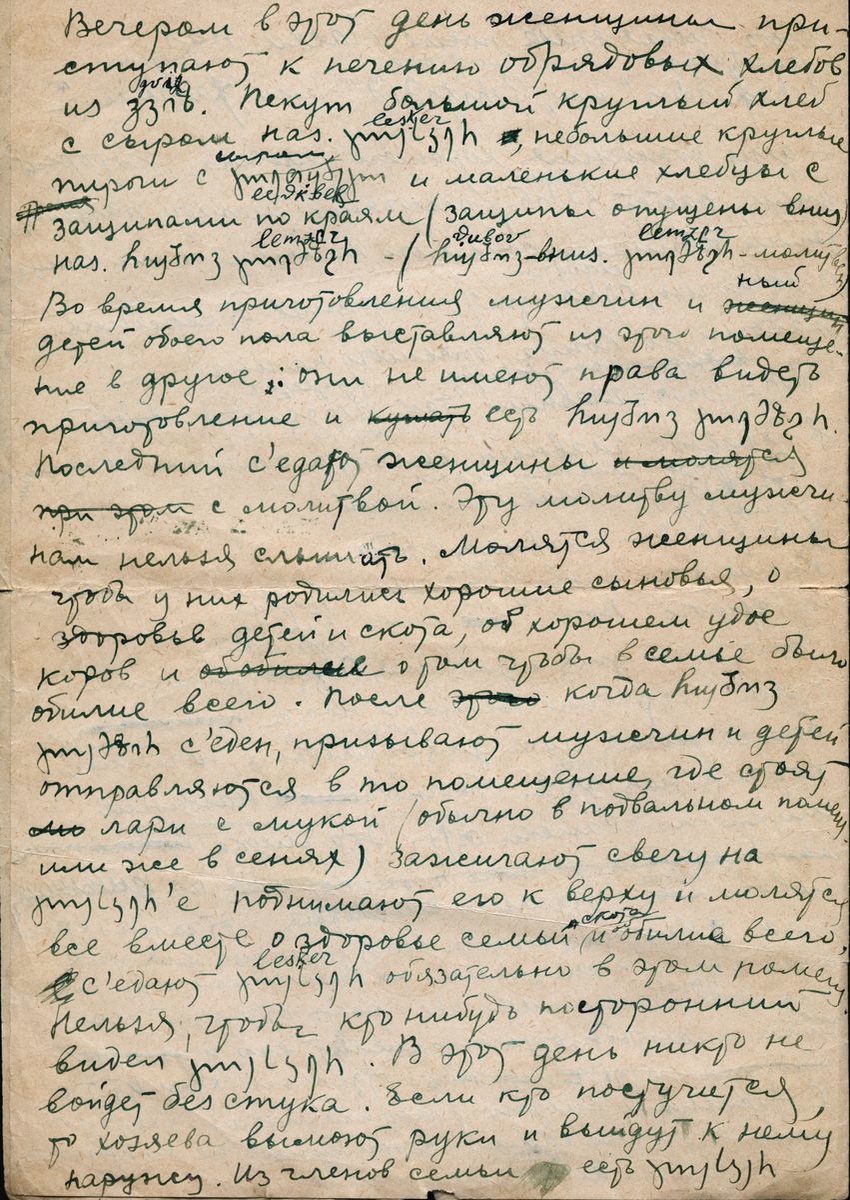 Вечером в этот день женщины при-
ступают к печению обрядовых хлебов
из ზგუ. Пекут большой круглый хлеб
lesker
с сыром наз. ლესკერ, небольшие круглые
пироги с и маленькие хлебцы с
защипами по краям (защипы опущены вниз)
lemzer lemzer
наз. ჩუბოვ ლემზირ - (ჩუბოვ - вниз. ლემზირ - молитвен
ный
Во время приготовления мужчин и женщин
детей обоего пола выставляют из этого помеще-
ние в другое; они не имеют права видеть
приготовление и кушать есть ჩუბოვ ლემზირ.
Последний с'едают женщины и молятся
при этом с молитвой. Эту молитву мужчи-
нам нельзя слышать. Молятся женщины
чтобы у них родились хорошие сыновья, о
здоровье детей и скота, об хорошем удое
коров и об обилие о том чтобы в семье было
обилие всего. После этого когда ჩუბოვ
ლემზირ с'еден, призывают мужчин и детей
отправляются в то помещение, где стоят
лари с мукой (обычно в подвальном помещ.
или же в сенях) зажигают свечу на
ლესკერ'е поднимают его к верху и молятся
скота
все вместе о здоровье семьи, и обилие всего,
lesker
с'едают ლესკერ обязательно в этом помещ.
Нельзя, чтобы кто нибудь посторонний
видел ლესკერ. В этот день никто не
войдет без стука. Если кто постучится,
то хозяева вымоют руки и выйдут к нему
наружу. Из членов семьи есть ლესკერ